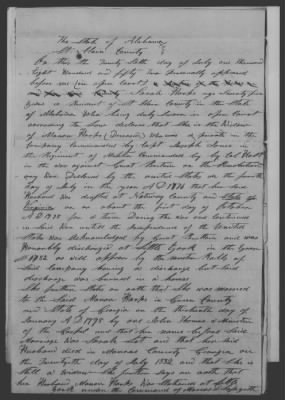 The State of Alabama
St Clair County
On this the Twenty Sixth day of July one thousand
Eight Hundred and fifty two personally appeared
before me in open Court
Sarah Harper age Seventy five
years a resident of St Clair County in the State
of Alabama who being duly sworn in open Court
according to law declares that she is the widow
of Manoah Harper (Deceased) who was a private in the
Company Commanded by Capt Joseph Jones in
the Regiment of Militia Commanded by Col
in the war against Great Britain on the
war was Declared by the United States on the fourth
day of July in the year A D 1776 that her said
Husband was drafted at County in State of
Virginia on or about the first day of
A D for term During the war and continued
in said war until the independence of the United
States was acknowledged by Great Britain and was
Honorably discharged at Little York in the year
1782 as will appear by the muster Rolls of
said Company having a discharge but said
discharge was burned in a house
She further states on oath that she was married
to the said Manoah Harper in County
and State of Georgia on the thirteenth day of
January A D by one John Thomas a Minister
of the Gospel and that her name before said
Marriage was Sarah and that her said
Husband died in Monroe County Georgia on
the Twenty day of July 1832 and that she is
Still a widow She further says on oath that
her Husband Manoah Harper was Stationed at Little
York under the Command of